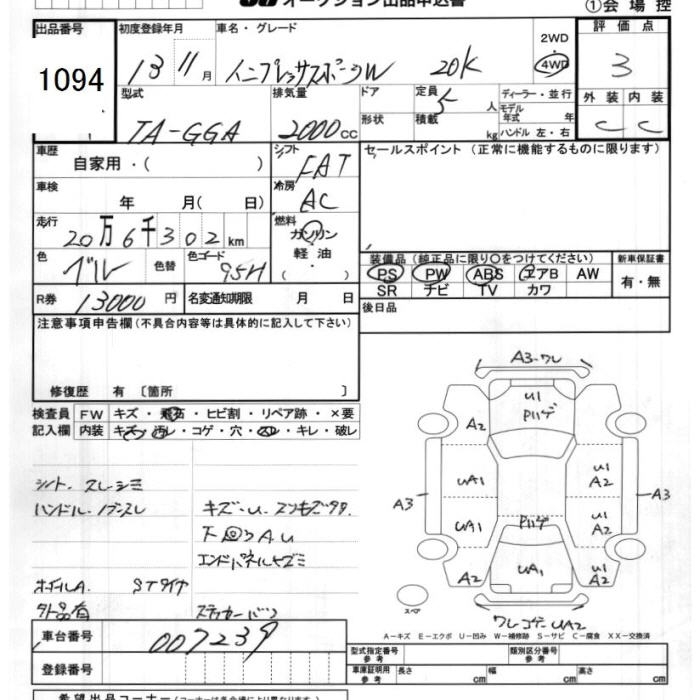 オークション出品申込書
①会場控
出品番号 初度登録年月 車名・グレード 2WD 評価点
1094 13 11月 インプレッサスポーツW 20K 4WD 3
型式 排気量 ドア 定員 5人 ディーラー・並行 外装 内装
TA-GGA 2000cc 形状 積載 kg モデル年式 年 C C
ハンドル 左・右
車歴 シフト セールスポイント (正常に機能するものに限ります)
自家用・( ) FAT
車検 冷房
年 月( 日) AC
走行 燃料
20万6千302km ガソリン
色 色替 色コード 軽油 装備品 (純正品に限り○をつけてください) 新車保証書
95H ・( ) PS PW ABS エアB AW 有・無
R券 13000円 名変通知期限 月 日 SR ナビ TV カワ
注意事項申告欄 (不具合内容等は具体的に記入して下さい) 後日品
修復歴 有 〔箇所 〕
検査員 FW キズ・飛石・ヒビ割・リペア跡・×要
記入欄 内装 キズ・汚レ・コゲ・穴・スレ・キレ・破レ
シート スレシミ
ハンドル
キズ・U
下回りA.U
ホイルA STタイヤ
外品有
A3・ワレ
U1
A2 A2
UA1 U1 A2
A3 A3
UA1 U1 A2
A2 UA1 U1 A2
スペア
UA2
A-キズ E-エクボ U-凹み W-補修跡 S-サビ C-腐食 XX-交換済
車台番号 007239
登録番号
型式指定番号 参考 類別区分番号 参考
車庫証明用 参考 長さ cm 幅 cm 高さ cm
希望出品コーナー